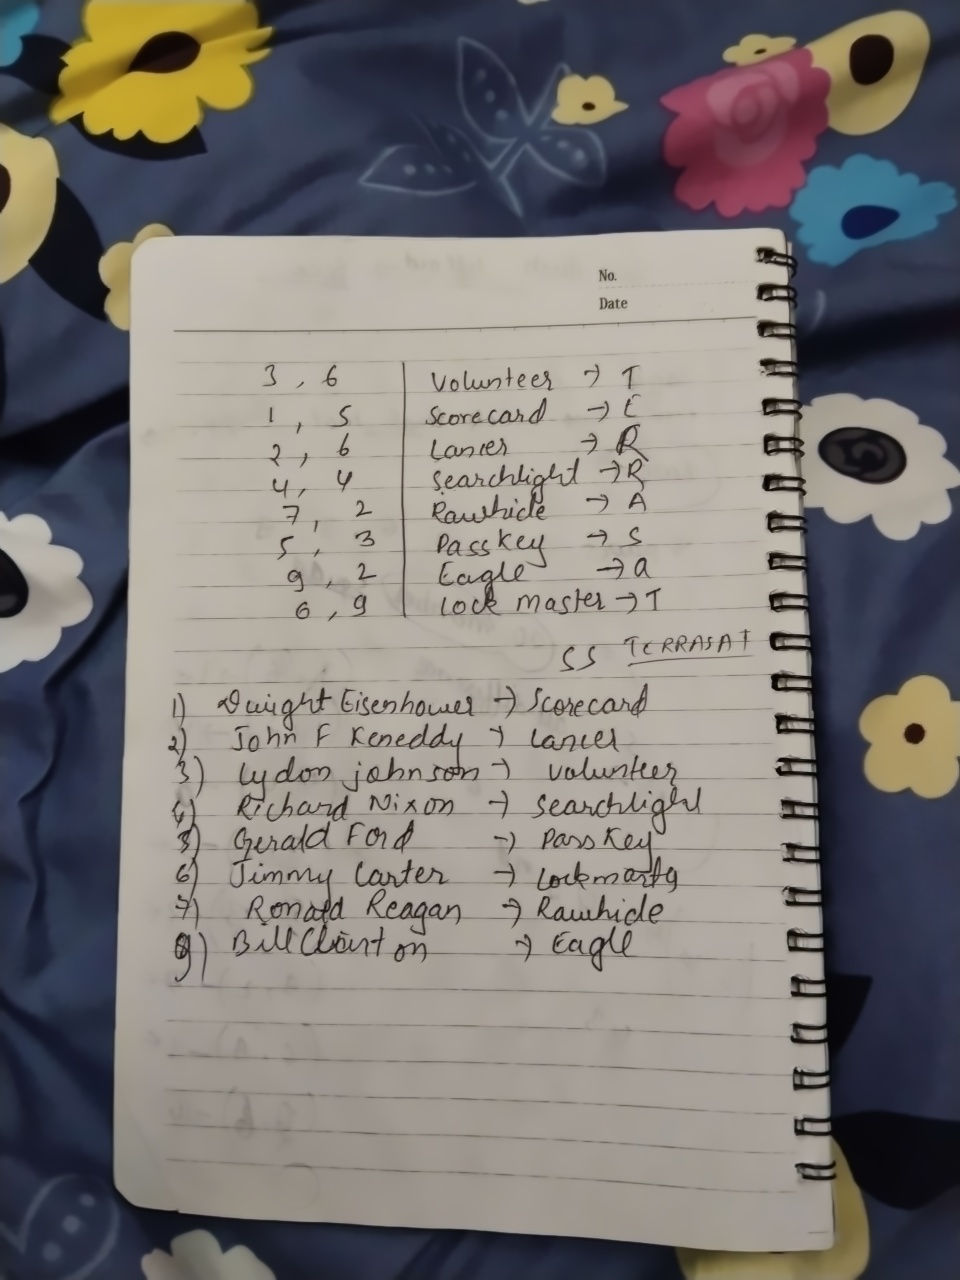 No.
Date
3, 6 Volunteer → T
1, 5 Scorecard → E
2, 6 Lancer → R
4, 4 Searchlight → R
7, 2 Rawhide → A
5, 3 Pass Key → S
9, 2 Eagle → a
6, 9 Lock master → T
SS TERRASAT
1) Dwight Eisenhower → Scorecard
2) John F Keneddy → Lancer
3) Lydon johnson → volunteer
4) Richard Nixon → Searchlight
5) Gerald Ford → Pass Key
6) Jimmy Carter →
7) Ronald Reagan → Rawhide
9) Bill Clinton → Eagle